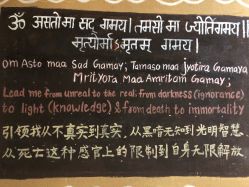 ॐ असतो मा सद् गमय। तमसो मा ज्योतिर्गमय।।
मृत्योर्माऽमृतम् गमय।
om Asto maa Sad Gamay; Tamaso maa jyotira Gamaya
Mrityora Maa Amritam Gamay;
Lead me from unreal to the real; from darkness (ignorance)
to light (knowledge) & from death to immortality
引领我从不真实到真实，从黑暗无知到光明智慧
从死亡这种感官上的限制到自身无限解放